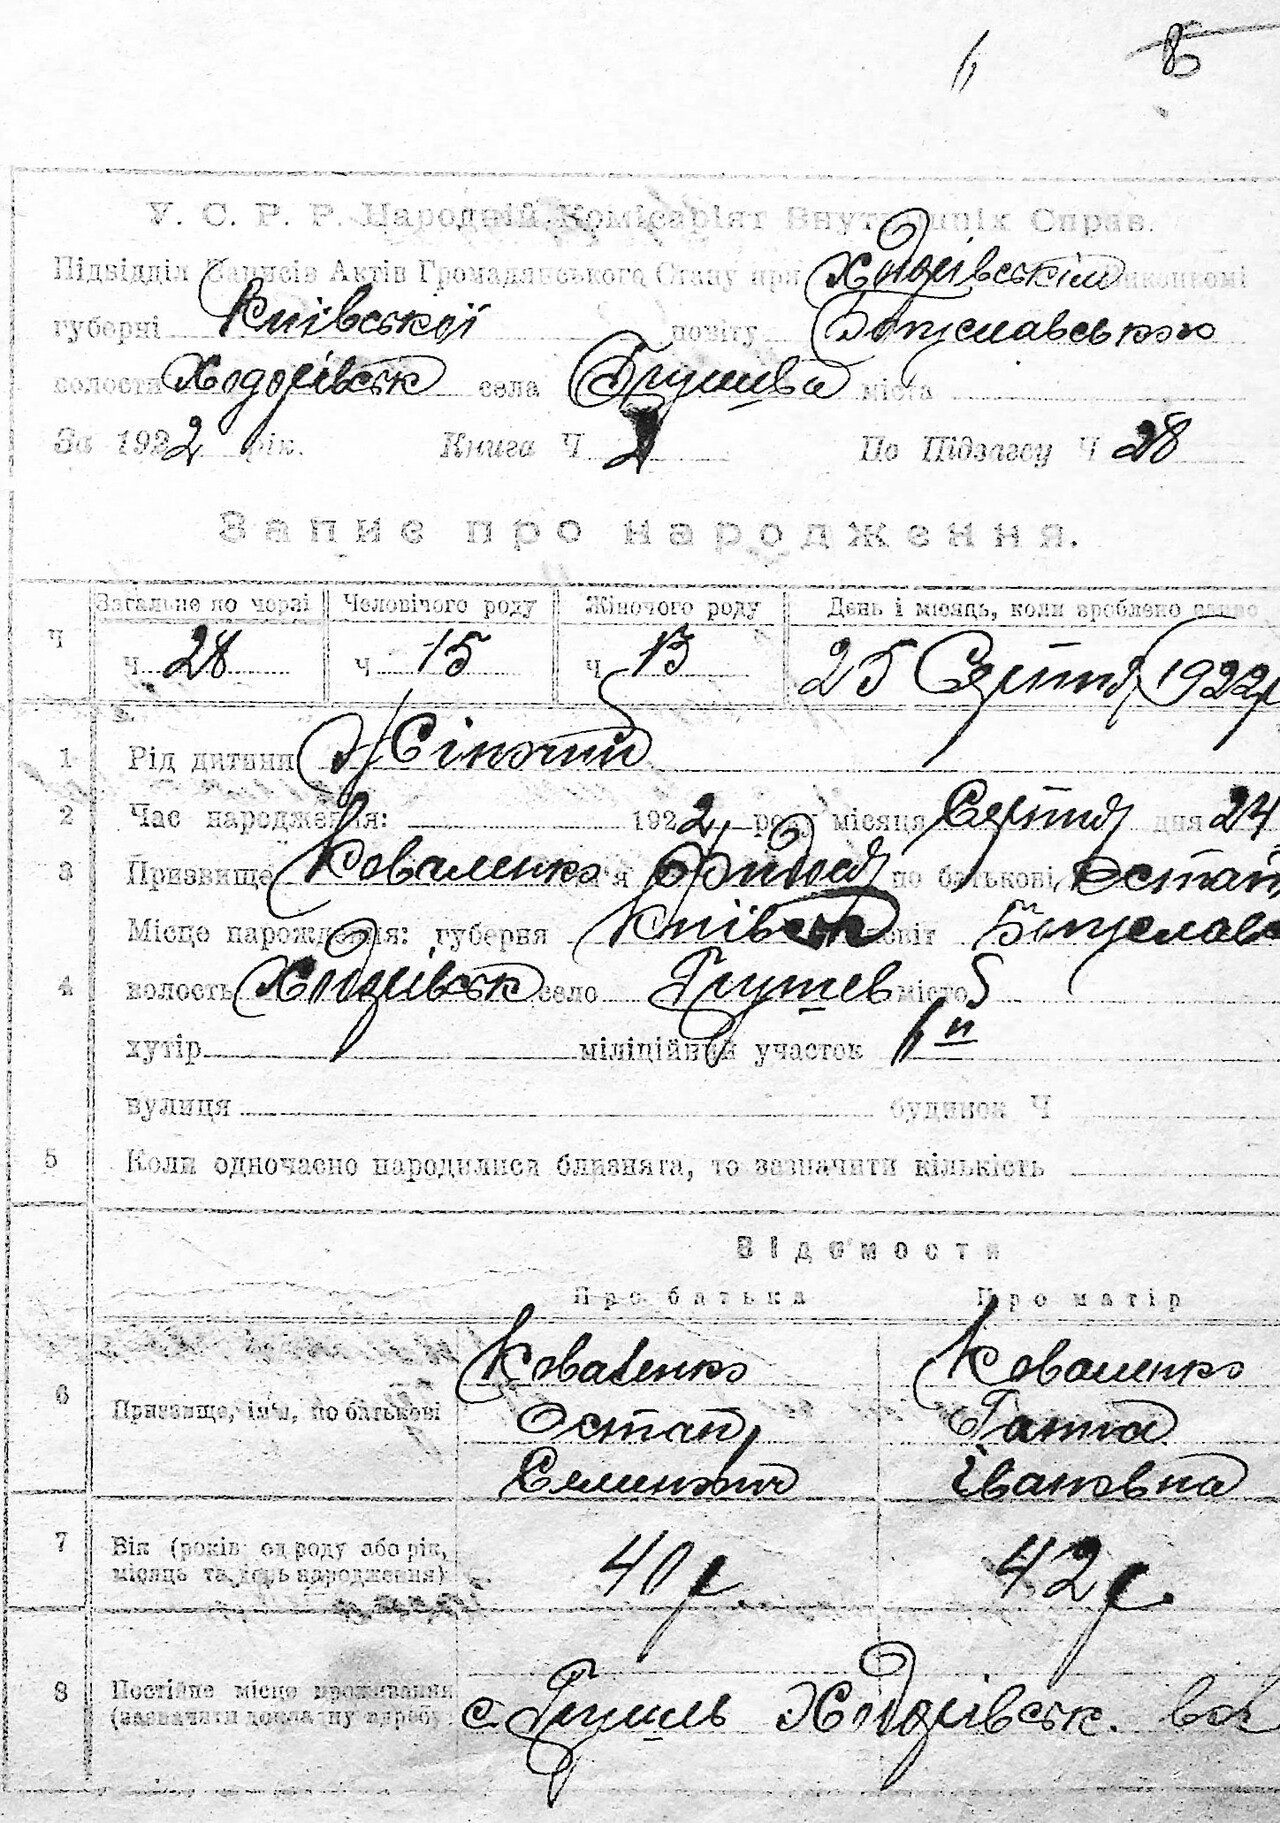 У. С. Р. Р. Народній Комісаріят Внутрішніх Справ.
Підвідділ Записів Актів Громадянського Стану при Ходорівськім Виконкомі
губерні Київської повіту Богуславського
волости Ходорівськ села Грушева міста
За 1922 рік. Книга Ч 2 По Підзагсу Ч 28
Запис про народження.
Загальне по черзі Человічого роду Жіночого роду День і місяць, коли зроблено запис
Ч ч 28 ч 15 ч 13 25 Серпня 1922 р
1 Рід дитини Жіночий
2 Час народження: 1922 року місяця Серпня дня 24
3 Призвище Коваленко ім'я Фидося по батькові Остап
Місце народження: губерня Київськ повіт Богуславс
4 волость Ходорівськ село Грушев місто
хутір міліційний участок
вулиця будинок Ч
5 Коли одночасно народилися близнята, то зазначити кількість
Відомости
Про батька Про матір
6 Призвище, ім'я, по батькові
Коваленко Коваленко
Остап Ганна
Семинович Івановна
7 Вік (років од роду або рік, місяць та день народження) 40 р. 42 р.
8 Постійне місце проживання (зазначити докладну адресу) с. Грушів Ходорівськ. вол